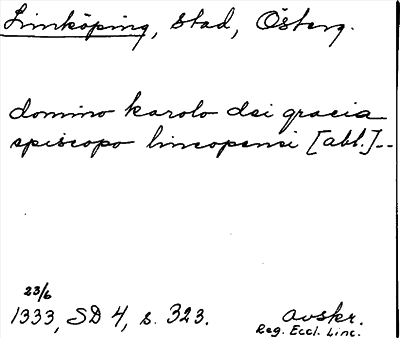 Linköping, stad, Österg.
domino karolo dei gracia
episcopo lincopensi [abl.]--
23/6
1333, SD 4, s. 323.
avskr.
Reg. Eccl. Linc.